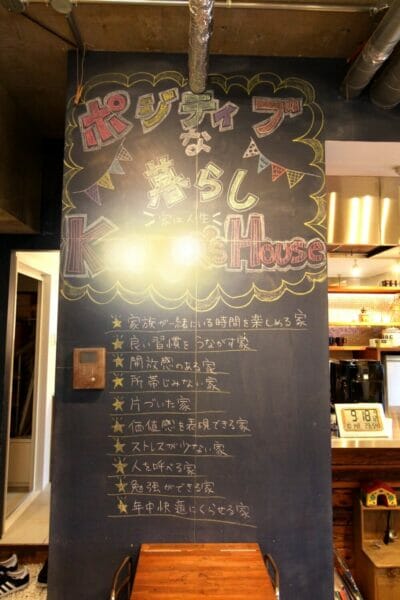 ポジティブ
な
暮らし
家は人生
House
★ 家族が一緒にいる時間を楽しめる家
★ 良い習慣をうながす家
★ 開放感のある家
★ 所帯じみない家
★ 片づいた家
★ 価値感を表現できる家
★ ストレスが少ない家
★ 人を呼べる家
★ 勉強ができる家
★ 年中快適にくらせる家